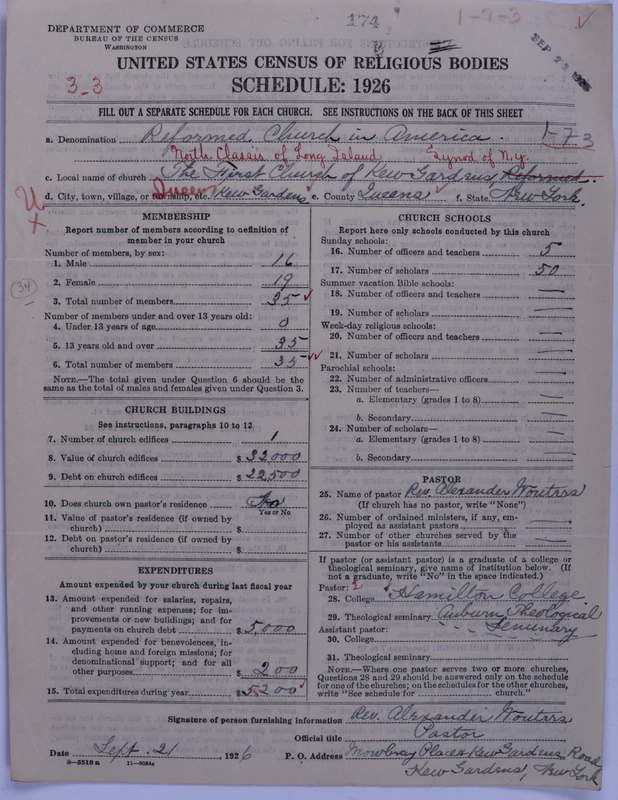 DEPARTMENT OF COMMERCE
BUREAU OF THE CENSUS
WASHINGTON
174
1-7-3
SEP 25 1926
UNITED STATES CENSUS OF RELIGIOUS BODIES
3-3
SCHEDULE: 1926
FILL OUT A SEPARATE SCHEDULE FOR EACH CHURCH. SEE INSTRUCTIONS ON THE BACK OF THIS SHEET
a. Denomination Reformed Church in America. 1-7-3
North Classis of Long Island Synod of N.Y.
c. Local name of church The First Church of Kew Gardens, Reformed.
d. City, town, village, or township, etc. Queens Kew Gardens e. County Queens f. State New York.
MEMBERSHIP
Report number of members according to definition of
member in your church
Number of members, by sex:
1. Male 16
2. Female 19
34
3. Total number of members 35
Number of members under and over 13 years old:
4. Under 13 years of age 0
5. 13 years old and over 35
6. Total number of members 35
NOTE.—The total given under Question 6 should be
same as the total of males and females given under Question 3.
CHURCH BUILDINGS
See instructions, paragraphs 10 to 12
7. Number of church edifices 1
8. Value of church edifices $ 32000
9. Debt on church edifices $ 22,500
10. Does church own pastor's residence No
Yes or No
11. Value of pastor's residence (if owned by
church) $
12. Debt on pastor's residence (if owned by
church) $
EXPENDITURES
Amount expended by your church during last fiscal year
13. Amount expended for salaries, repairs,
and other running expenses; for im-
provements or new buildings; and for
payments on church debt $ 5,000
14. Amount expended for benevolences, in-
cluding home and foreign missions; for
denominational support; and for all
other purposes $ 200
15. Total expenditures during year $ 5200
CHURCH SCHOOLS
Report here only schools conducted by this church
Sunday schools:
16. Number of officers and teachers 5
17. Number of scholars 50
Summer vacation Bible schools:
18. Number of officers and teachers
19. Number of scholars
Week-day religious schools:
20. Number of officers and teachers
21. Number of scholars
Parochial schools:
22. Number of administrative officers
23. Number of teachers—
a. Elementary (grades 1 to 8)
b. Secondary
24. Number of scholars—
a. Elementary (grades 1 to 8)
b. Secondary
PASTOR
25. Name of pastor Rev. Alexander Wouters
(If church has no pastor, write "None")
26. Number of ordained ministers, if any, em-
ployed as assistant pastors
27. Number of other churches served by the
pastor or his assistants
If pastor (or assistant pastor) is a graduate of a college or
theological seminary, give name of institution below. (If
not a graduate, write "No" in the space indicated.)
Pastor: 2
28. College Hamilton College
29. Theological seminary Auburn Theological
Assistant pastor: Seminary
30. College
31. Theological seminary
NOTE.—Where one pastor serves two or more churches,
Questions 28 and 29 should be answered only on the schedule
for one of the churches; on the schedules for the other churches,
write "See schedule for church."
Signature of person furnishing information Rev. Alexander Wouters
Official title Pastor
Date Sept. 21, 1926 P. O. Address Mowbray Place & Kew Gardens Road
8-5518 a 11-9054a Kew Gardens, New York